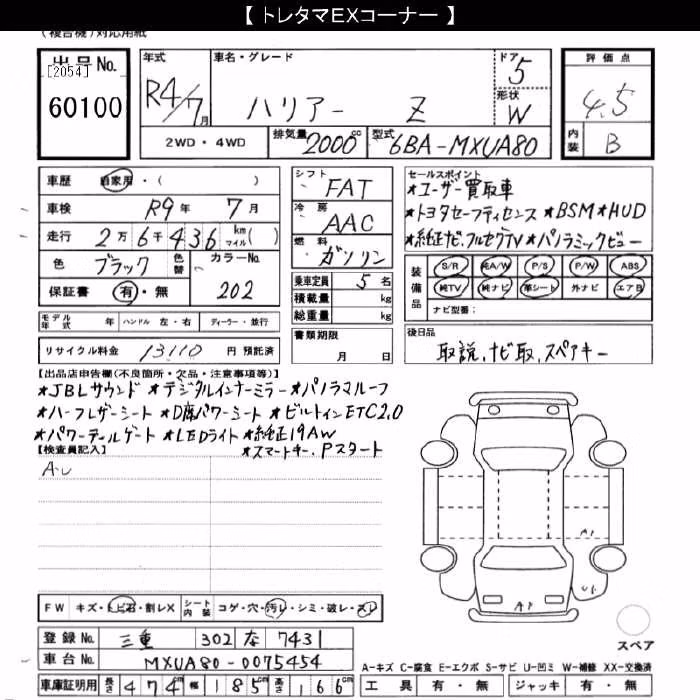 【 トレタマEXコーナー 】
(複合機)対応用紙
出品No.
[2054]
60100
年式
R4/7月
車名・グレード
ハリアー Z
ドア
5
形状
W
評価点
4.5
内装
B
2WD・4WD
排気量 2000cc
型式 6BA-MXUA80
車歴 自家用・( )
車検 R9年 7月
走行 2万6千436 km マイル( )
色 ブラック 色替
カラーNo.
202
保証書 有・無
シフト
FAT
冷房
AAC
燃料
ガソリン
乗車定員 5名
積載量 kg
総重量 kg
書類期限
月 日
セールスポイント
★ユーザー買取車
★トヨタセーフティセンス ★BSM★HUD
★純正ナビ.フルセグTV★パノラミックビュー
装備品
S/R 純A/W P/S P/W ABS
純TV 純ナビ 革シート 外ナビ エアB
ナビ型番:
モデル年式 年 ハンドル 左・右 ディーラー・並行
リサイクル料金 13110 円 預託済
後日品
取説.ナビ取.スペアキー
【出品店申告欄(不良箇所・欠品・注意事項等)】
★JBLサウンド ★デジタルインナーミラー ★パノラマルーフ
★ハーフレザーシート ★D席パワーシート ★ビルトインETC2.0
★パワーテールゲート ★LEDライト ★純正19AW
★スマートキー.Pスタート
【検査員記入】
A・U
A1
U1
A1
FW キズ・トビ石・割レX
シート内装 コゲ・穴・汚レ・シミ・破レ・スレ
スペア
登録No. 三重 302 な 7431
車台No. MXUA80-0075454
A-キズ C-腐食 E-エクボ S-サビ U-凹ミ W-補修 XX-交換済
車庫証明用 長さ 474cm 幅 185cm 高さ 166cm
工具 有・無 ジャッキ 有・無